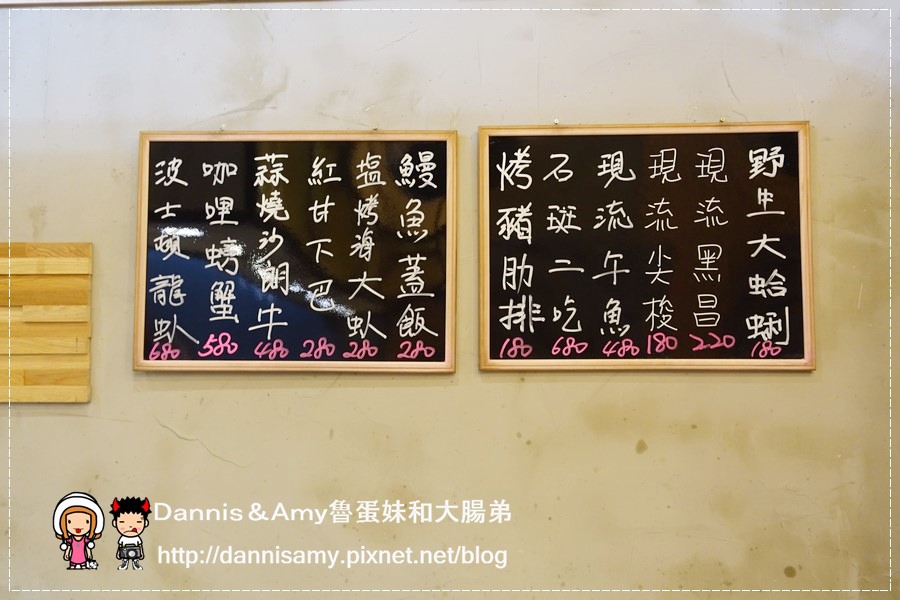 野生大蛤蜊 180
現流黑昌 220
現流尖梭 180
現流午魚 480
石斑二吃 680
烤豬肋排 180
鰻魚蓋飯 280
塩烤海大虾 280
紅甘下巴 280
蒜燒沙朗牛 480
咖哩螃蟹 580
波士頓龍虾 680
Dannis&Amy魯蛋妹和大腸弟
http://dannisamy.pixnet.net/blog